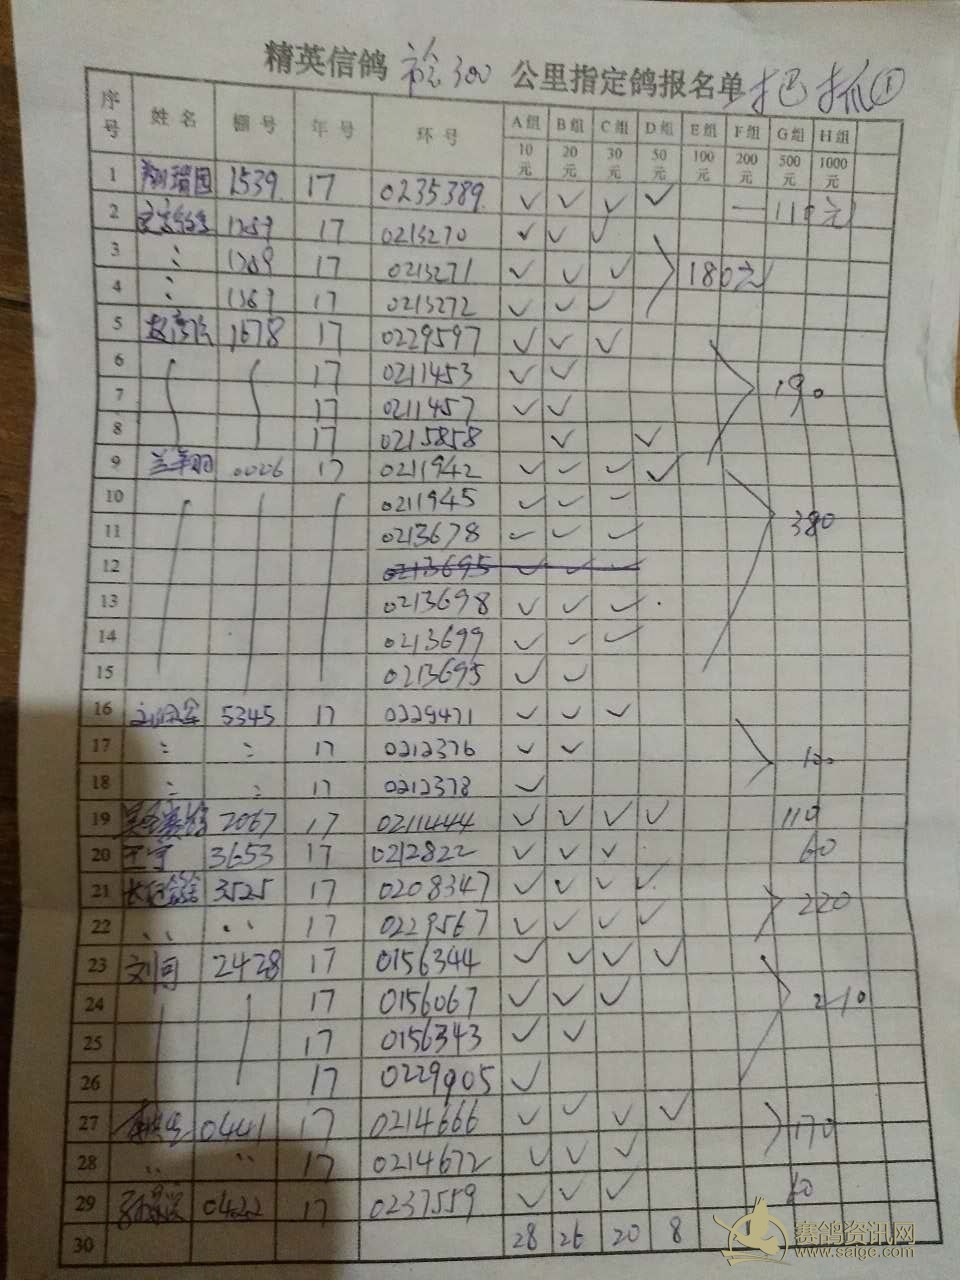 精英信鸽 300 公里指定鸽报名单 ①
序号 姓名 棚号 年号 环号 A组 B组 C组 D组 E组 F组 G组 H组
10元 20元 30元 50元 100元 200元 500元 1000元
1 1539 17 0235389 ✓ ✓ ✓ ✓ 110元
2 17 0213270 ✓ ✓ ✓
3 17 0213271 ✓ ✓ ✓ 180元
4 17 0213272 ✓ ✓ ✓
5 1678 17 0229597 ✓ ✓ ✓
6 17 0211453 ✓ ✓
7 17 0211457 ✓ ✓ 190
8 17 0215858 ✓ ✓
9 0006 17 0211942 ✓ ✓ ✓ ✓
10 0211945 ✓ ✓ ✓
11 0213678 ✓ ✓ ✓ 380
12 0213695 ✓ ✓ ✓
13 0213698 ✓ ✓ ✓
14 0213699 ✓ ✓ ✓
15 0213695 ✓ ✓
16 5345 17 0229471 ✓ ✓ ✓
17 〃 〃 17 0212376 ✓ ✓ 100
18 〃 〃 17 0212378 ✓
19 2067 17 0211444 ✓ ✓ ✓ ✓ 110
20 3653 17 0212822 ✓ ✓ ✓ 60
21 3525 17 0208347 ✓ ✓ ✓ ✓
22 〃 〃 17 0229567 ✓ ✓ ✓ ✓ 220
23 2428 17 0156344 ✓ ✓ ✓ ✓
24 17 0156067 ✓ ✓ ✓ 210
25 17 0156343 ✓ ✓
26 17 0229905 ✓
27 0441 17 0214666 ✓ ✓ ✓ ✓
28 〃 〃 17 0214672 ✓ ✓ ✓ 170
29 0422 17 0237559 ✓ ✓ ✓ 60
30 28 26 20 8
赛鸽资讯网
www.saigc.com